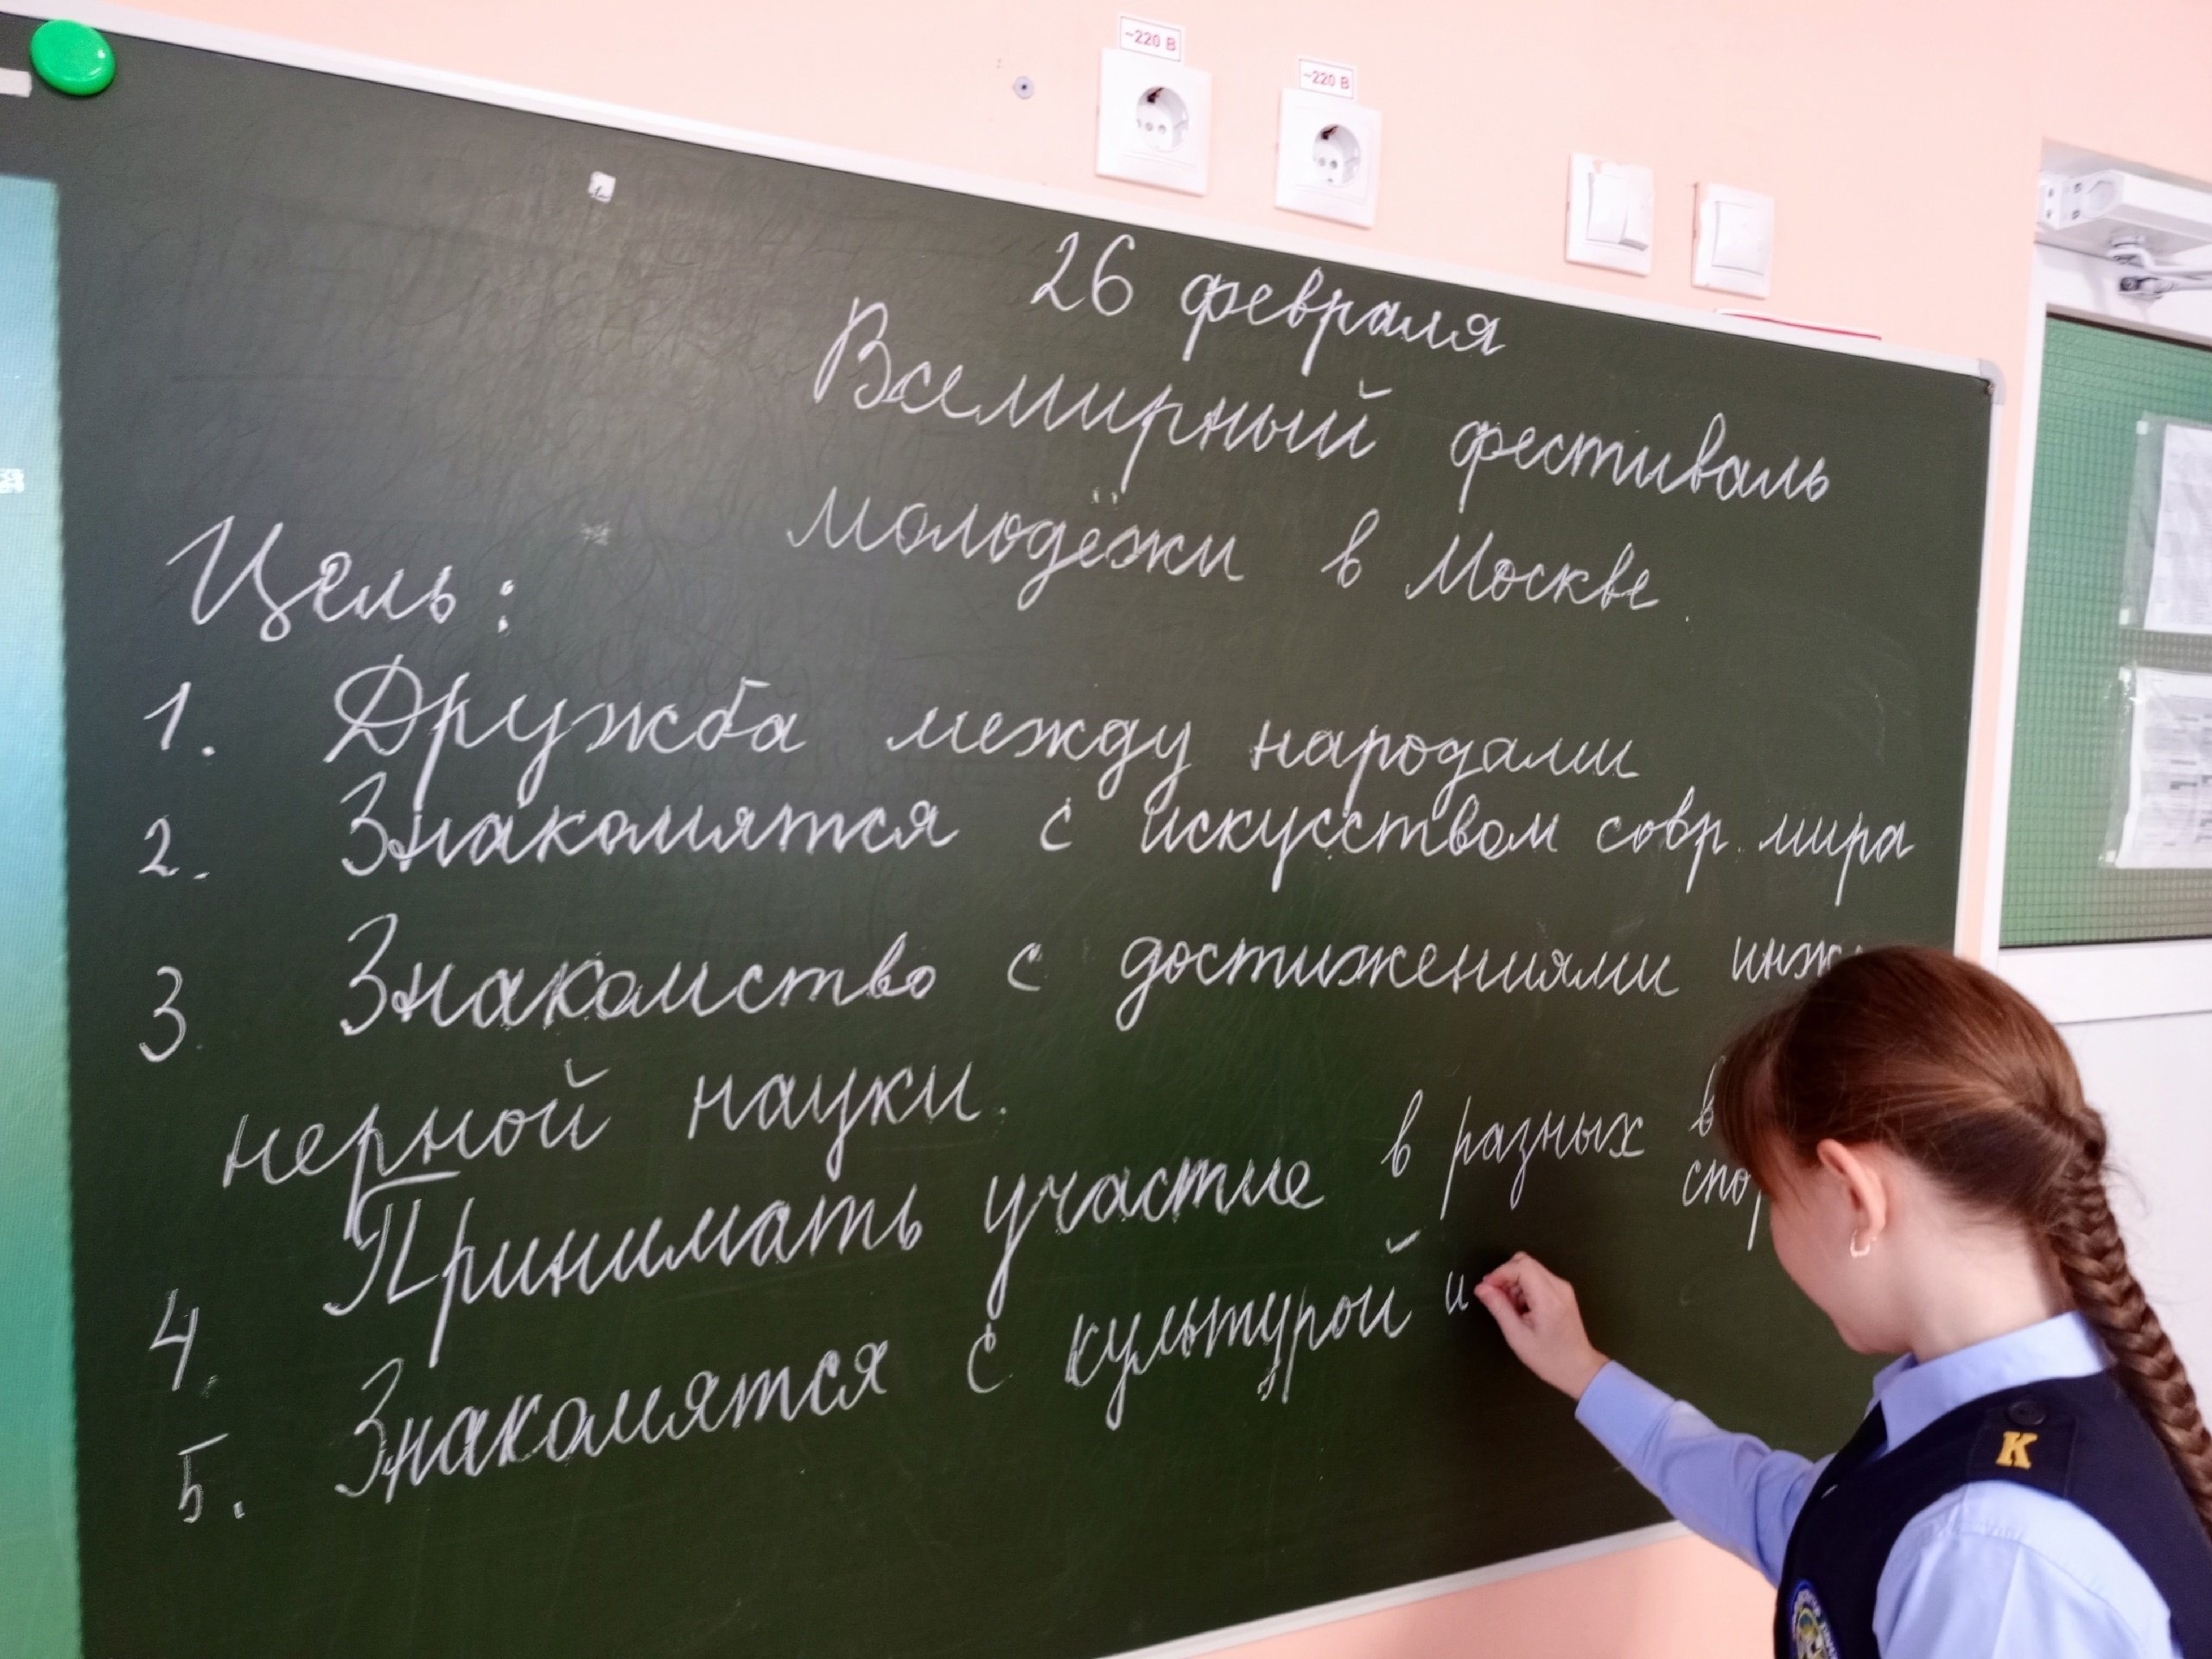 ~220 В
~220 В
26 февраля
Всемирный фестиваль
молодёжи в Москве.
Цель:
1. Дружба между народами
2. Знакомятся с искусством совр. мира
3. Знакомство с достижениями инже
нерной науки.
4. Принимать участие в разных в
спор
5. Знакомятся с культурой и
К